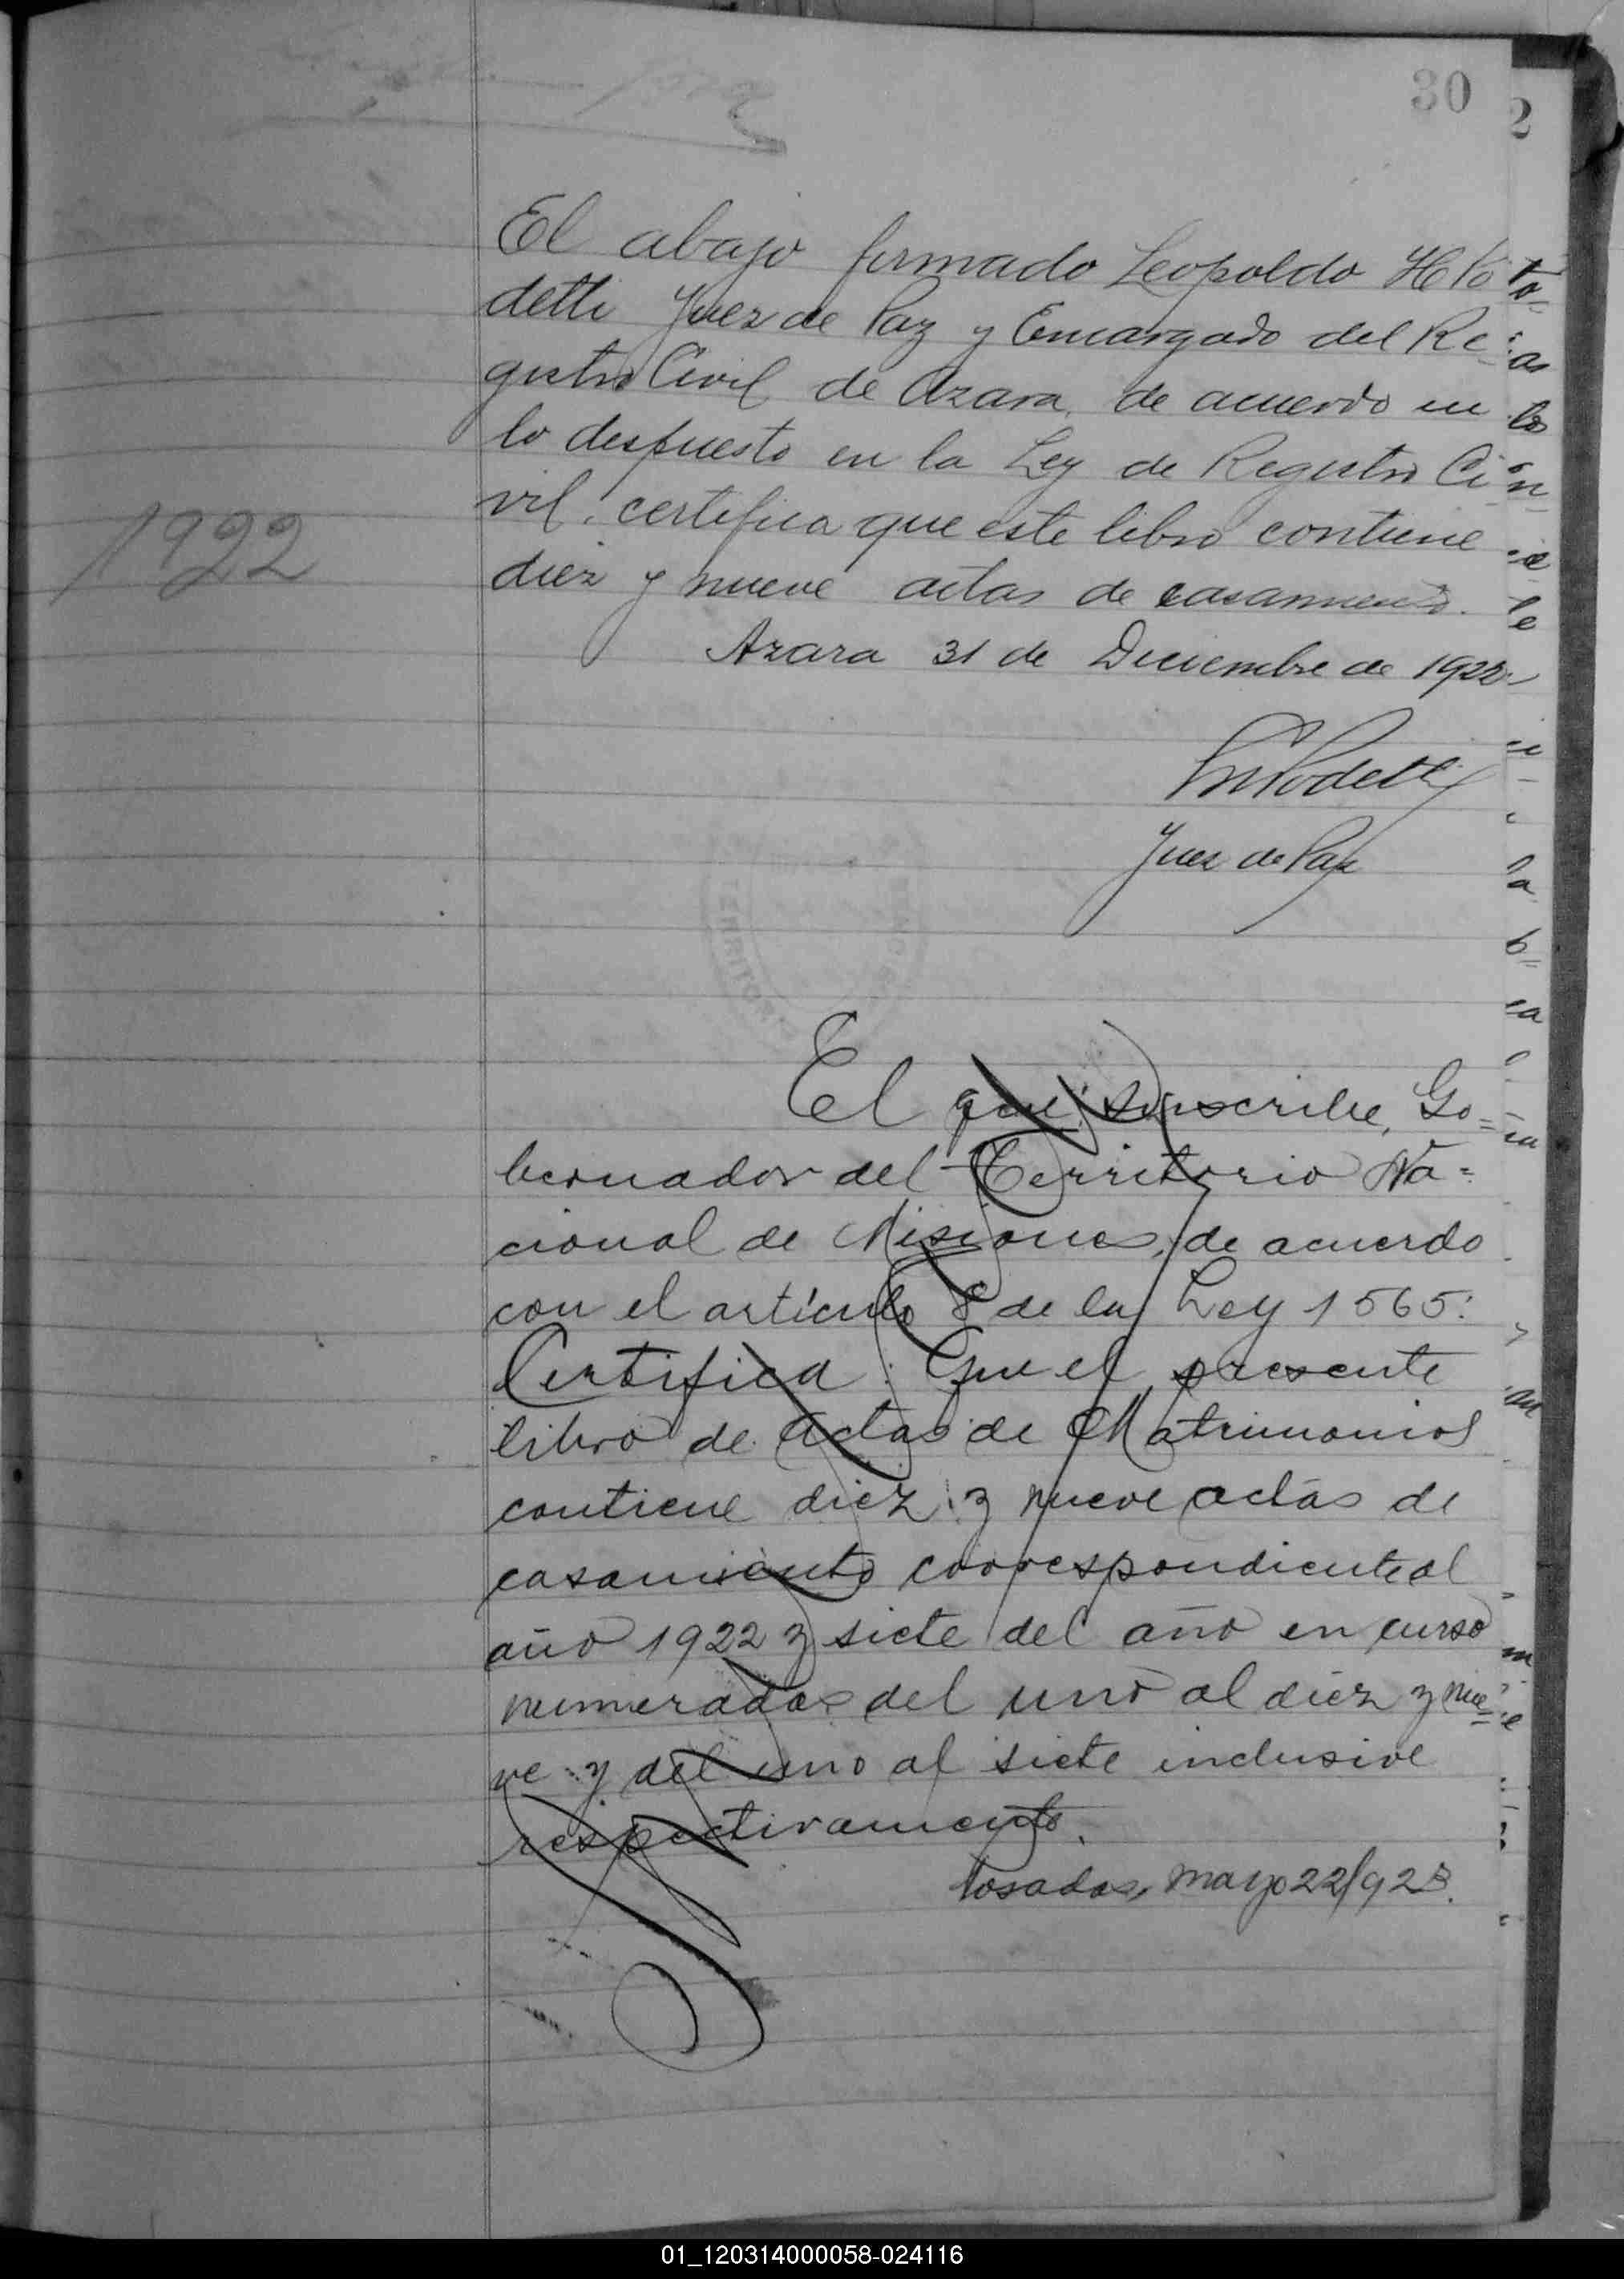 30
2
El abajo firmado Leopoldo H Po
detti Juez de Paz y Encargado del Re-
gistro Civil de Azara, de acuerdo en
lo despuesto en la Ley de Registro Ci-
vil, certifica que este libro contiene
1922
diez y nueve actas de casamiento.
Azara 31 de Diciembre de 1922
Podetti
Juez de Paz
El que suscribe, Go=
bernador del Territorio Na=
cional de Misiones, de acuerdo
con el artículo 8 de la Ley 1565:
Certifica: Que el presente
libro de actas de Matrimonios
contiene diez y nueve actas de
casamiento correspondiente al
año 1922 y siete del año en curso
numeradas del uno al diez y nue=
ve y del uno al siete inclusive
respectivamente.
Posadas, mayo 22/923.
01_120314000058-024116